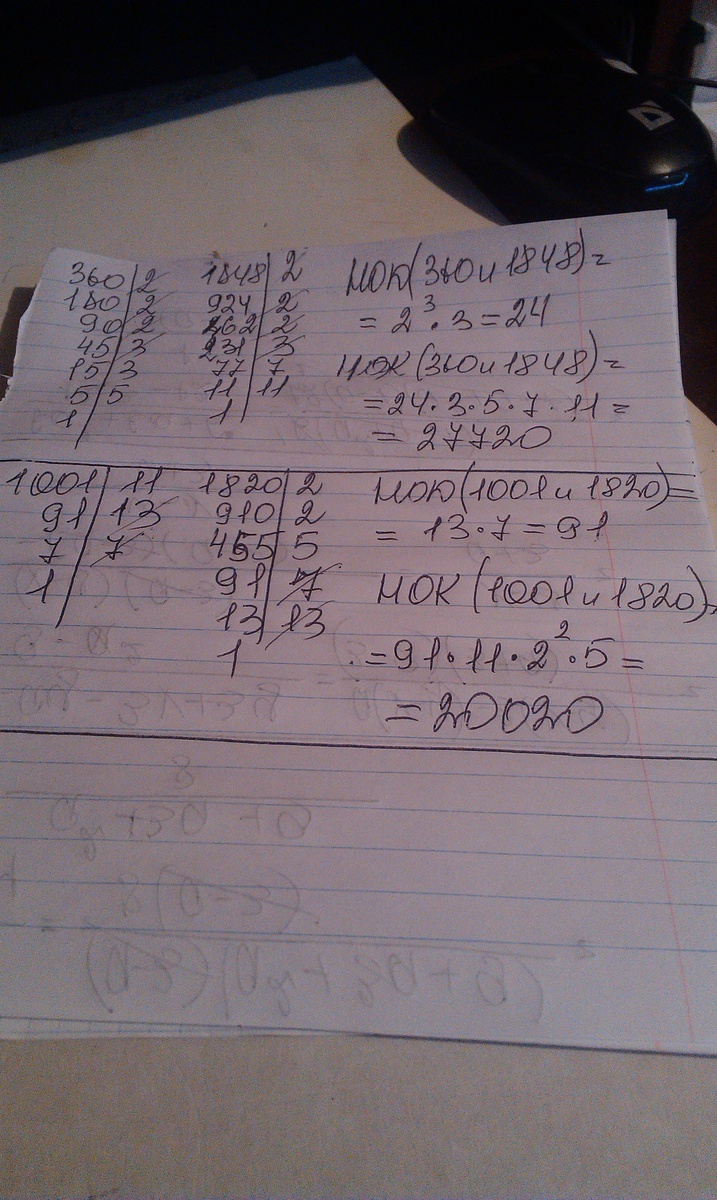 360|2 1848|2 НОД(360 и 1848)=
180|2 924|2 = 2³·3=24
90|2 462|2
45|3 231|3 НОК(360 и 1848)=
15|3 77|7 =24·3·5·7·11=
5|5 11|11 = 27720
1| 1|
1001|11 1820|2 НОД(1001 и 1820)=
91|13 910|2 = 13·7=91
7|7 455|5
1| 91|7 НОК(1001 и 1820)=
13|13 =91·11·2²·5=
1| =20020